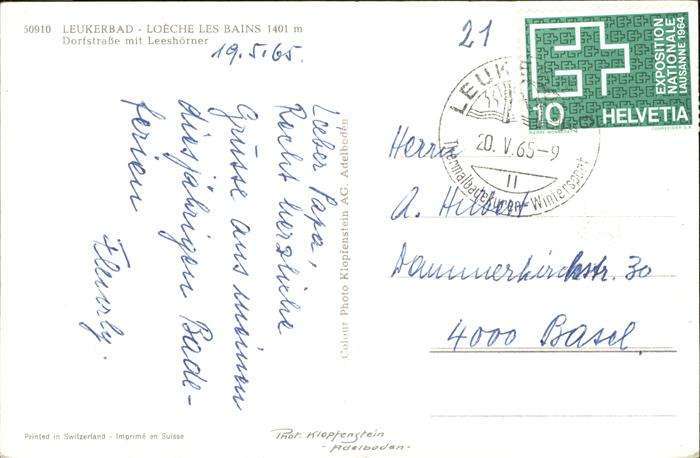 50910 LEUKERBAD - LOÈCHE LES BAINS 1401 m
Dorfstraße mit Leeshörner
19.5.65.
Lieber Papa,
Recht herzliche
Grüsse aus meinen
diesjährigen Bade-
ferien
Colour Photo Klopfenstein AG. Adelboden
21
LEUK
20. V. 65-9
II
Thermalbadekuren Wintersport
EXPOSITION
NATIONALE
LAUSANNE 1964
10 HELVETIA
Herrn
A. Hilbert
Dammerkirchstr. 30
4000 Basel
Printed in Switzerland - Imprimé en Suisse
Phot. Klopfenstein
- Adelboden -